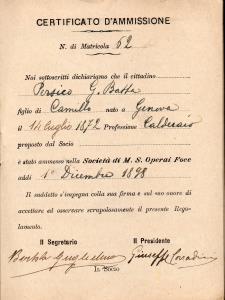 CERTIFICATO D'AMMISSIONE
N. di Matricola 62
Noi sottoscritti dichiariamo che il cittadino
Persico G. Batta
figlio di Camillo nato a Genova
il 14 luglio 1872 Professione Calderaio
proposto dal Socio
è stato ammesso nella Società di M. S. Operai Foce
addì 1º Dicembre 1898
Il suddetto s'impegna colla sua firma e sul suo onore di
accettare ed osservare scrupolosamente il presente Rego-
lamento.
Il Segretario Il Presidente
Guglielmo Giuseppe